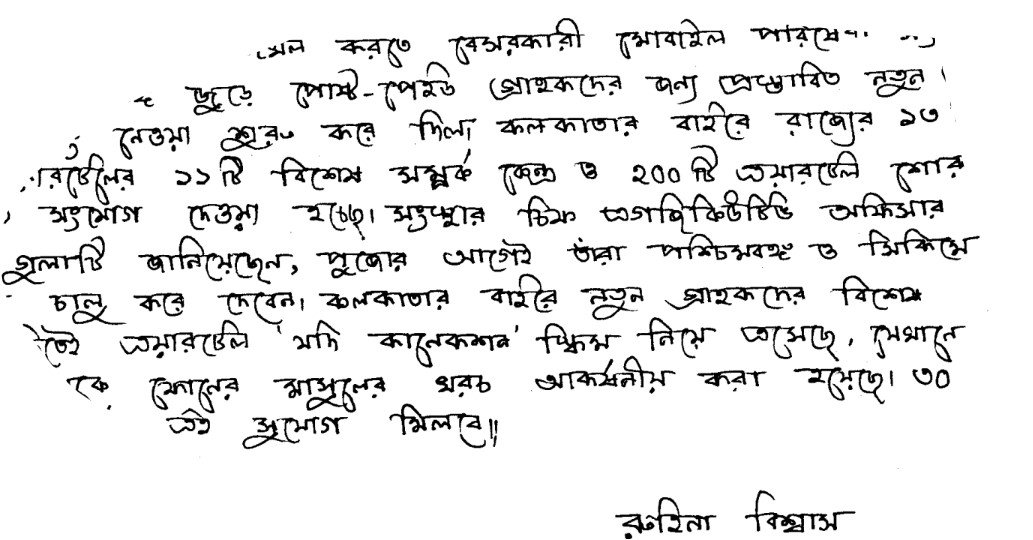 করতে বেসরকারী মোবাইল
জুড়ে পোষ্ট-পেইড গ্রাহকদের জন্য প্রস্তাবিত নতুন
নেওয়া শুরু করে দিল। কলকাতার বাইরে রাজ্যের ১৩
১১টি বিশেষ সম্পর্ক কেন্দ্র ও ২০০টি এয়ারটেল শোর
সংযোগ দেওয়া হচ্ছে। সংস্থার চিফ এগজিকিউটিভ অফিসার
গুলাটি জানিয়েছেন, পুজোর আগেই তাঁরা পশ্চিমবঙ্গ ও সিকিমে
চালু করে দেবেন। কলকাতার বাইরে নতুন গ্রাহকদের বিশেষ
এয়ারটেল 'যদি কানেকশন' স্কিম নিয়ে এসেছে, সেখানে
ফোনের মাসুলের খরচ আকর্ষনীয় করা হয়েছে। ৩০
এই সুযোগ মিলবে॥
রুহিনা বিশ্বাস